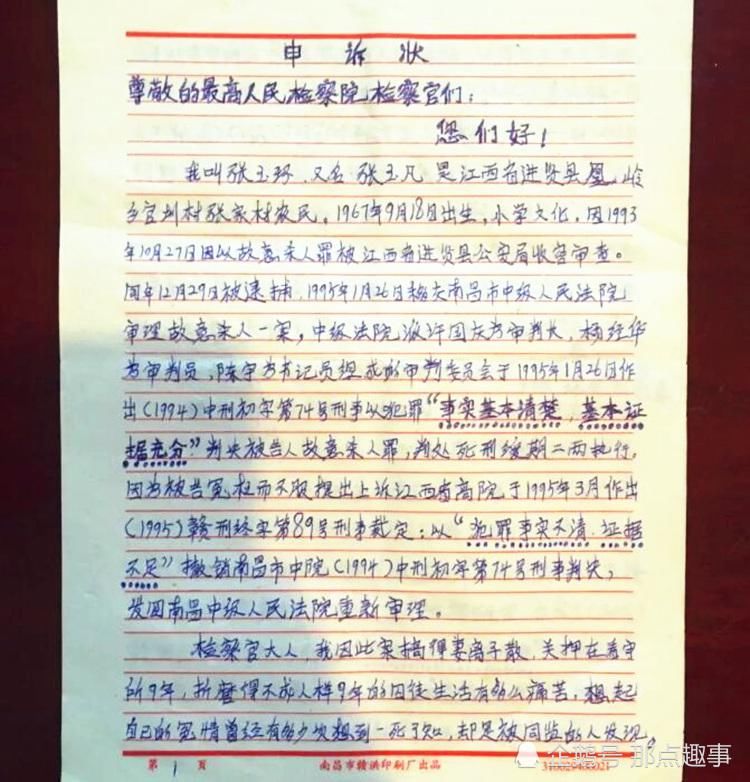 申诉状
尊敬的最高人民检察院检察官们：
您们好！
我叫张玉环、又名张玉凡是江西省进贤县凰岭
乡宜圳村张家村农民，1967年9月18日出生，小学文化，因1993
年10月27日因以故意杀人罪被江西省进贤县公安局收容审查。
同年12月29日被逮捕，1995年1月26日移交南昌市中级人民法院
审理故意杀人一案，中级法院派许国庆为审判长，杨经华
为审判员，陈宇为书记员组成的审判委员会于1995年1月26日作
出（1994）中刑初字第74号刑事以犯罪“事实基本清楚，基本证
据充分”判决被告人故意杀人罪，判处死刑缓期二两执行。
因为被告冤枉而不服提出上诉江西省高院于1995年3月作出
（1995）赣刑终字第89号刑事裁定：以“犯罪事实不清、证据
不足”撤销南昌市中院（1994）中刑初字第74号刑事判决，
发回南昌中级人民法院重新审理。
检察官大人，我因此案搞得妻离子散，关押在看守
所9年，折磨得不成人样9年的囚徒生活有多么痛苦，想起
自己的冤情曾经有多少次想到一死了知，却是被同监的人发现。
第 1 页 南昌市赣洪印刷厂出品
企鹅号 那点趣事